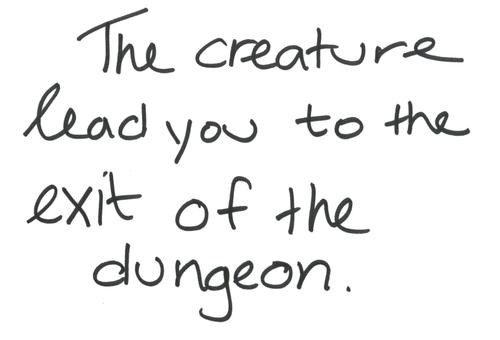 The creature
lead you to the
exit of the
dungeon.